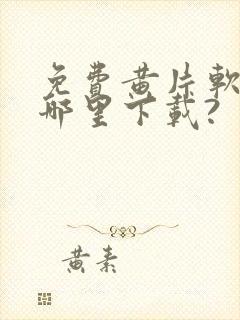 免費黃片軟
哪里下載?
黃素